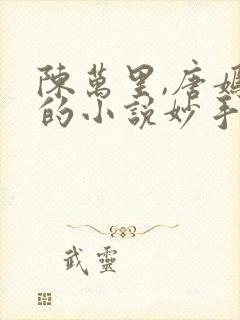 陳萬里,唐嫣
的小說妙手
武靈